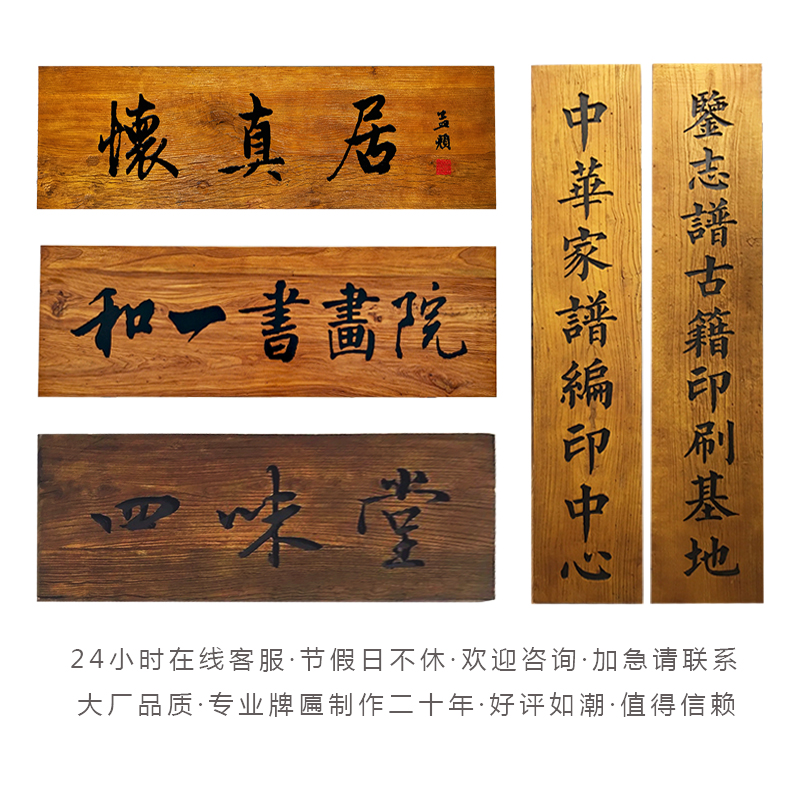 懷真居
孟頫
和一書畫院
四味堂
中華家譜編印中心
鑒志譜古籍印刷基地
24小时在线客服·节假日不休·欢迎咨询·加急请联系
大厂品质·专业牌匾制作二十年·好评如潮·值得信赖